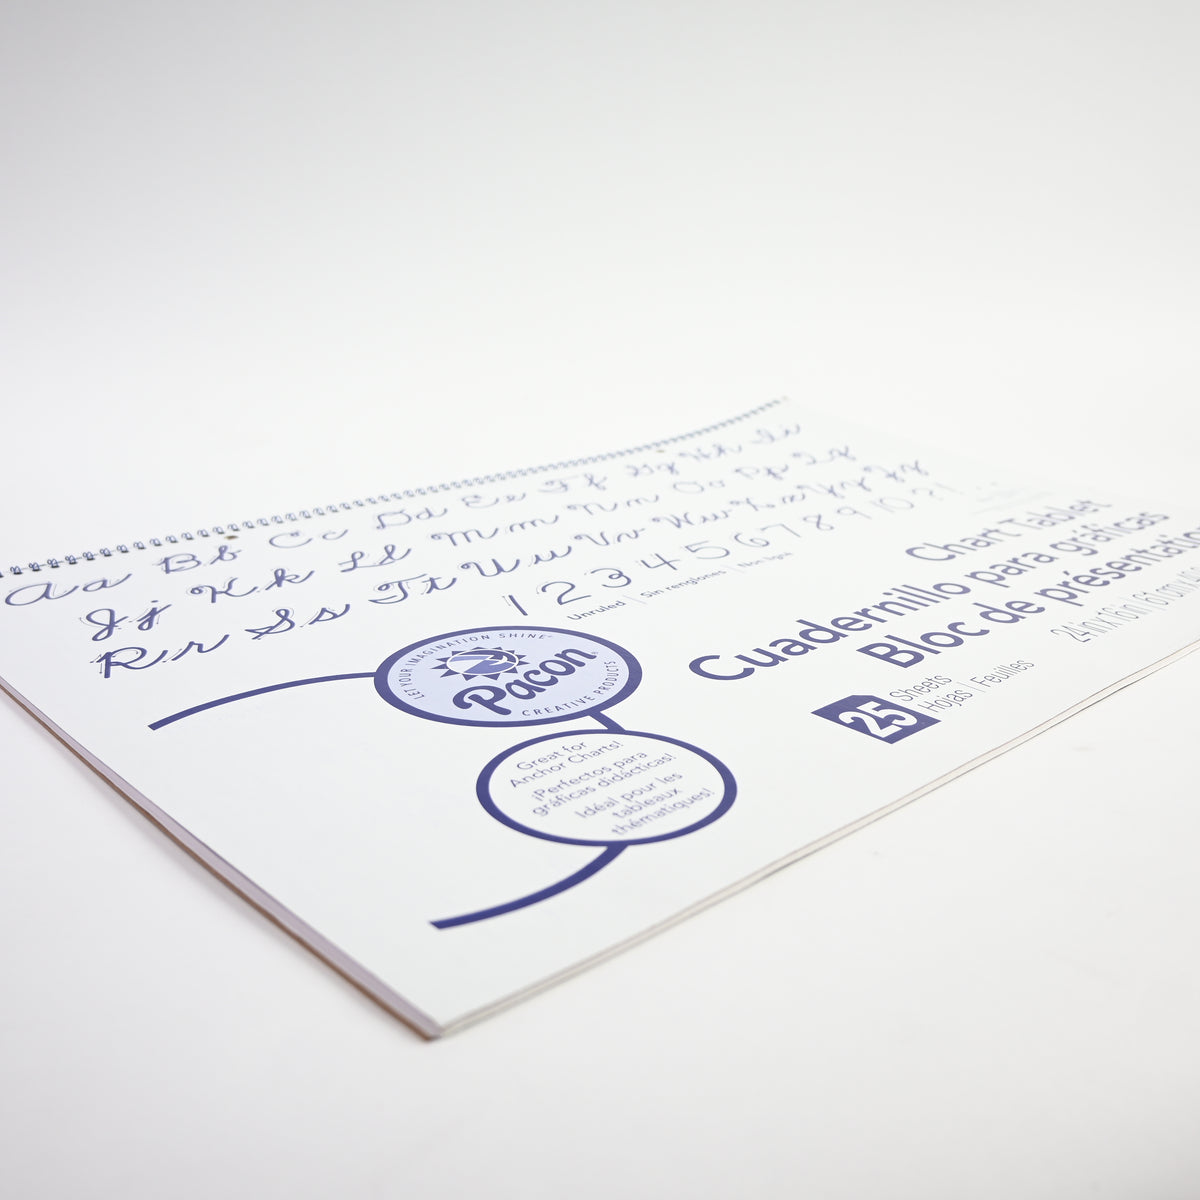 Aa Bb Cc Dd Ee Ff Gg Hh Ii
Jj Kk Ll Mm Nn Oo Pp Qq
Rr Ss Tt Uu Vv Ww Xx Yy Zz
1 2 3 4 5 6 7 8 9 10 ? !
Unruled | Sin renglones | Non ligné
LET YOUR IMAGINATION SHINE
Pacon®
CREATIVE PRODUCTS
Great for
Anchor Charts!
¡Perfectos para
gráficas didácticas!
Idéal pour les
tableaux
thématiques!
Chart Tablet
Cuadernillo para gráficas
Bloc de présentation
24 in x 16 in (61 cm x
25
Sheets
Hojas | Feuilles